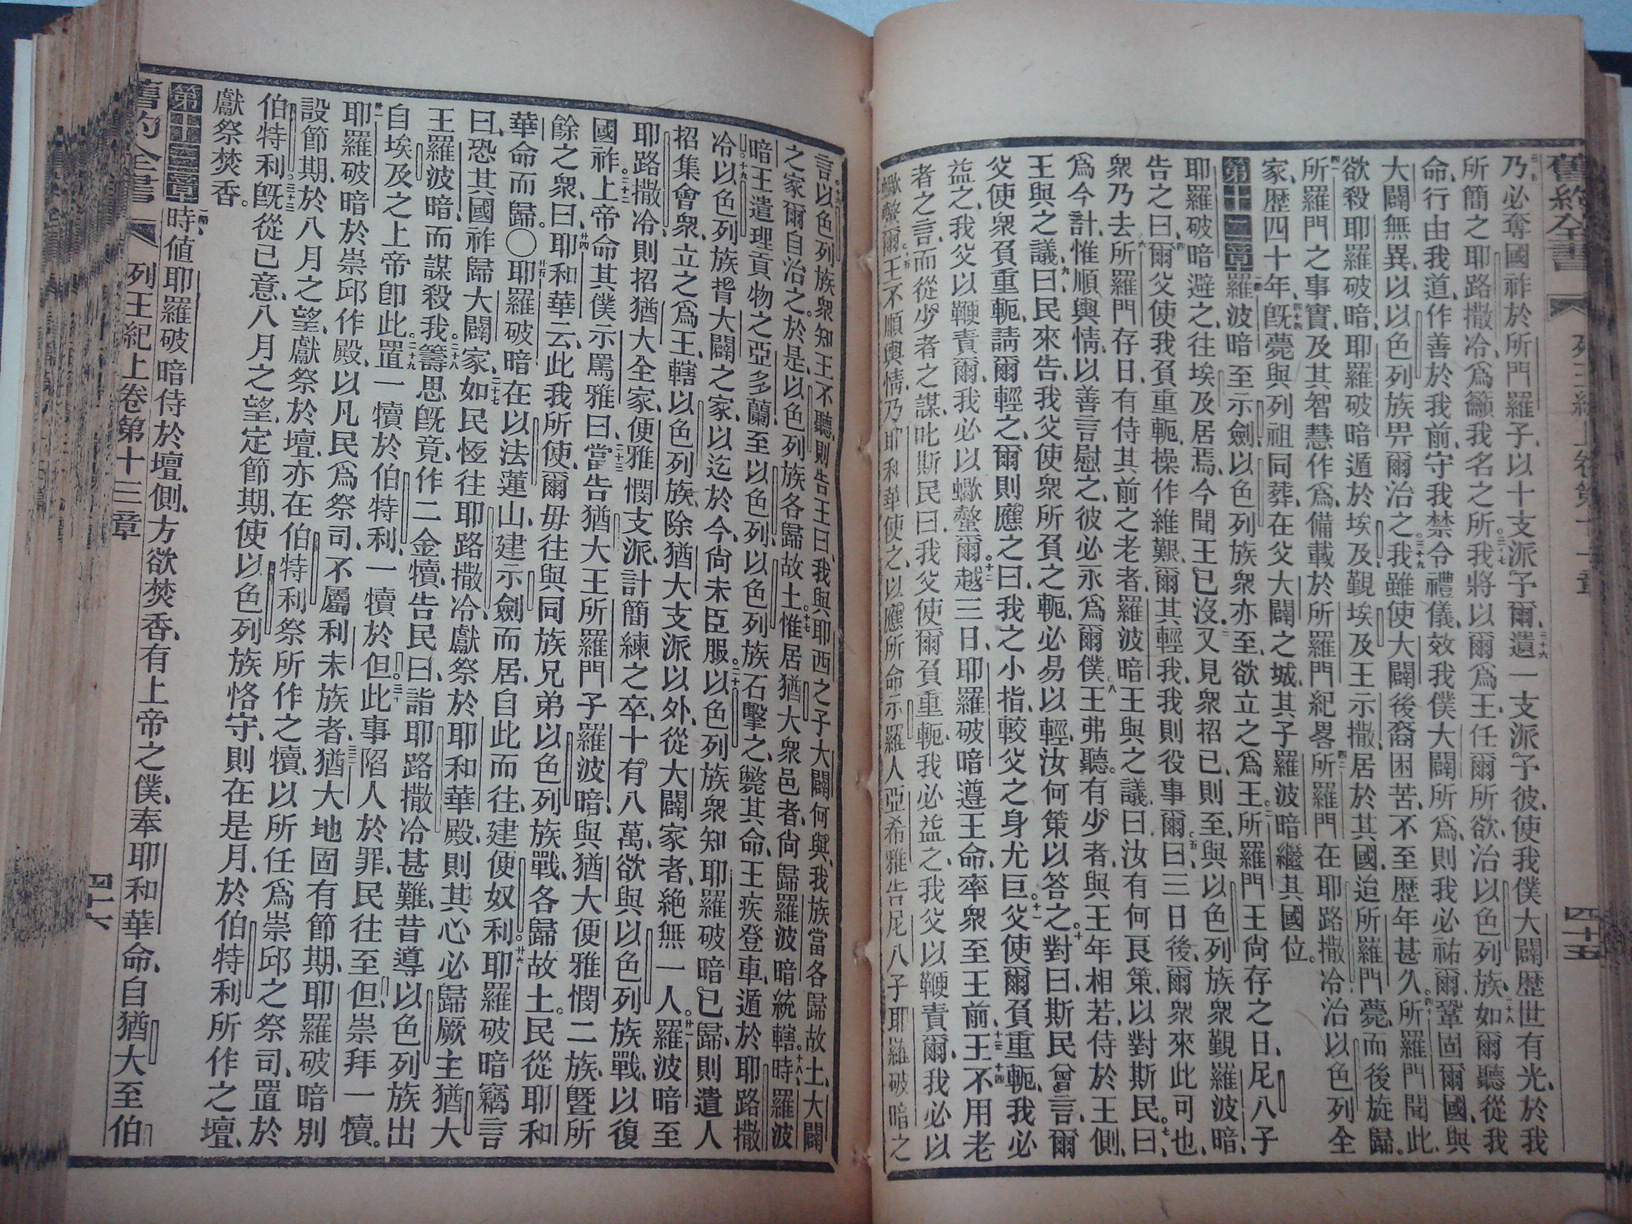 舊約全書 列王紀上卷第十一章 四十五
乃必奪國祚於所門羅子、以十支派予爾、遺一支派予彼、使我僕大闢歷世有光、於我
所簡之耶路撒冷、爲籲我名之所、我將以爾爲王、任爾所欲、治以色列族、如爾聽從我
命、行由我道、作善於我前、守我禁令禮儀、效我僕大闢所爲、則我必祐爾、鞏固爾國、與
大闢無異、以以色列族畀爾治之、我雖使大闢後裔困苦、不至歷年甚久、所羅門聞此、
欲殺耶羅破暗、耶羅破暗遁於埃及、覲埃及王示撒、居於其國、迨所羅門薨、而後旋歸。
所羅門之事實、及其智慧作爲、備載於所羅門紀畧、所羅門在耶路撒冷治以色列全
家、歷四十年、旣薨、與列祖同葬、在父大闢之城、其子羅波暗繼其國位。
第十二章 羅波暗至示劍、以色列族衆亦至、欲立之爲王、所羅門王尙存之日、尼八子
耶羅破暗避之、往埃及居焉、今聞王已沒、又見衆招己、則至、與以色列族衆覲羅波暗、
告之曰、爾父使我負重軛、操作維艱、爾其輕我、我則役事爾、曰、三日後、爾衆來此可也、
衆乃去、所羅門存日、有侍其前之老者、羅波暗王與之議曰、汝有何良策、以對斯民、曰、
爲今計、惟順輿情、以善言慰之、彼必永爲爾僕、王弗聽、有少者、與王年相若、侍於王側、
王與之議曰、民來告我、父使衆所負之軛、必易以輕、汝何策以答之、對曰、斯民曾言、爾
父使衆負重軛、請爾輕之、爾則應之曰、我之小指、較父之身尤巨、父使爾負重軛、我必
益之、我父以鞭責爾、我必以蠍螫爾、越三日、耶羅破暗遵王命、率衆至王前、王不用老
者之言、而從少者之謀、叱斯民曰、我父使爾負重軛、我必益之、我父以鞭責爾、我必以
蠍螫爾、王不順輿情、乃耶和華使之、以應所命示羅人亞希雅告尼八子耶羅破暗之
言、以色列族衆知王不聽、則告王曰、我與耶西之子大闢何與、我族當各歸故土、大闢
之家、爾自治之、於是以色列族各歸故土、惟居猶大衆邑者、尙歸羅波暗統轄、時羅波
暗王遣理貢物之亞多蘭至以色列、以色列族石擊之、斃其命、王疾登車、遁於耶路撒
冷、以色列族背大闢之家、以迄於今、尙未臣服、以色列族衆知耶羅破暗已歸、則遣人
招集會衆、立之爲王、轄以色列族、除猶大支派以外、從大闢家者、絶無一人。羅波暗至
耶路撒冷、則招猶大全家、便雅憫支派、計簡練之卒、十有八萬、欲與以色列族戰、以復
國祚、上帝命其僕示罵雅曰、當告猶大王所羅門子羅波暗、與猶大便雅憫二族、曁所
餘之衆、曰、耶和華云、此我所使、爾毋往與同族兄弟以色列族戰、各歸故土、民從耶和
華命而歸○耶羅破暗在以法蓮山、建示劍而居、自此而往、建便奴利、耶羅破暗竊言
曰、恐其國祚歸大闢家、如民恆往耶路撒冷、獻祭於耶和華殿、則其心必歸厥主猶大
王羅波暗、而謀殺我、籌思旣竟、作二金犢、告民曰、詣耶路撒冷甚難、昔導以色列族出
自埃及之上帝卽此、置一犢於伯特利、一犢於但、此事陷人於罪、民往至但、崇拜一犢。
耶羅破暗於崇邱作殿、以凡民爲祭司、不屬利未族者、猶大地固有節期、耶羅破暗別
設節期、於八月之望、獻祭於壇、亦在伯特利祭所作之犢、以所任爲崇邱之祭司、置於
伯特利、旣從己意、八月之望、定節期、使以色列族恪守、則在是月、於伯特利所作之壇、
獻祭焚香。
第十三章 時値耶羅破暗侍於壇側、方欲焚香、有上帝之僕、奉耶和華命、自猶大至伯
舊約全書 列王紀上卷第十三章 四十六